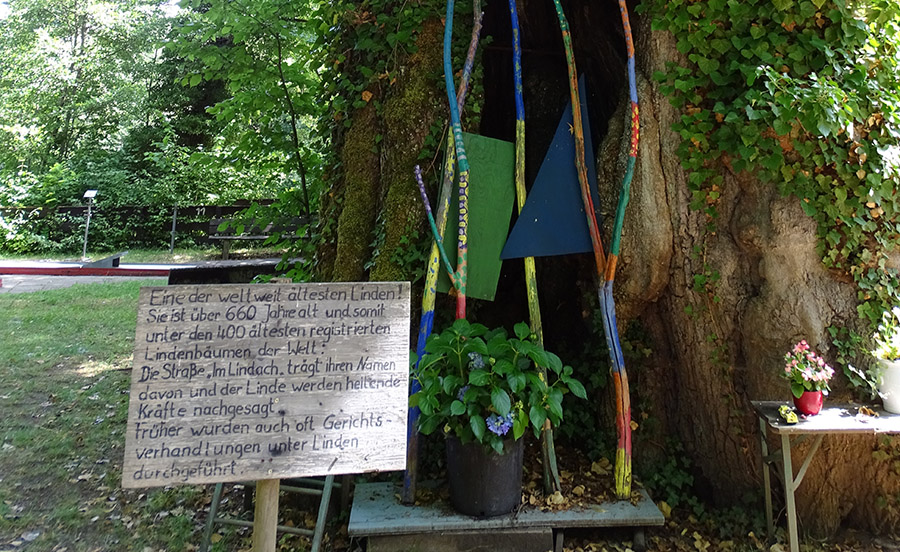 Eine der weltweit ältesten Linden!
Sie ist über 660 Jahre alt und somit
unter den 400 ältesten registrierten
Lindenbäumen der Welt.
Die Straße „Im Lindach“ trägt ihren Namen
davon und der Linde werden heilende
Kräfte nachgesagt.
Früher wurden auch oft Gerichts-
verhandlungen unter Linden
durchgeführt.